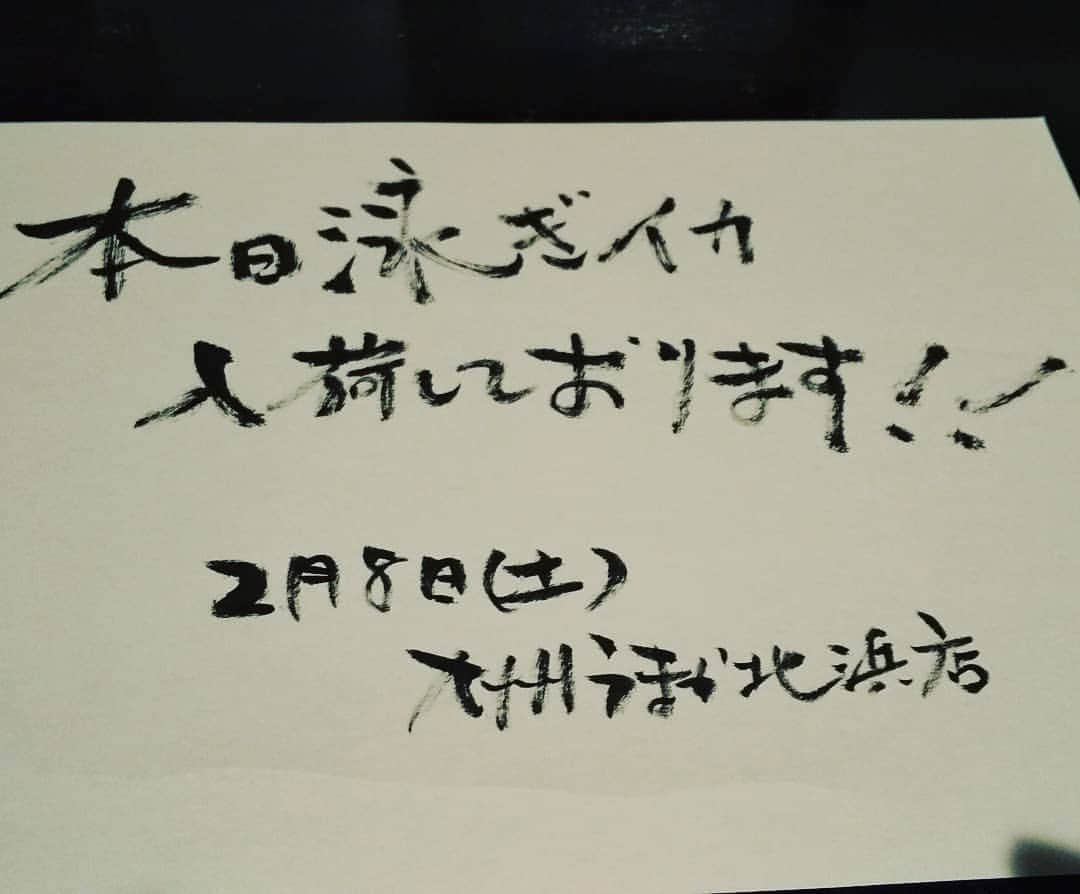 本日泳ぎイカ
入荷しております!!
2月8日(土)
九州うまか北浜店